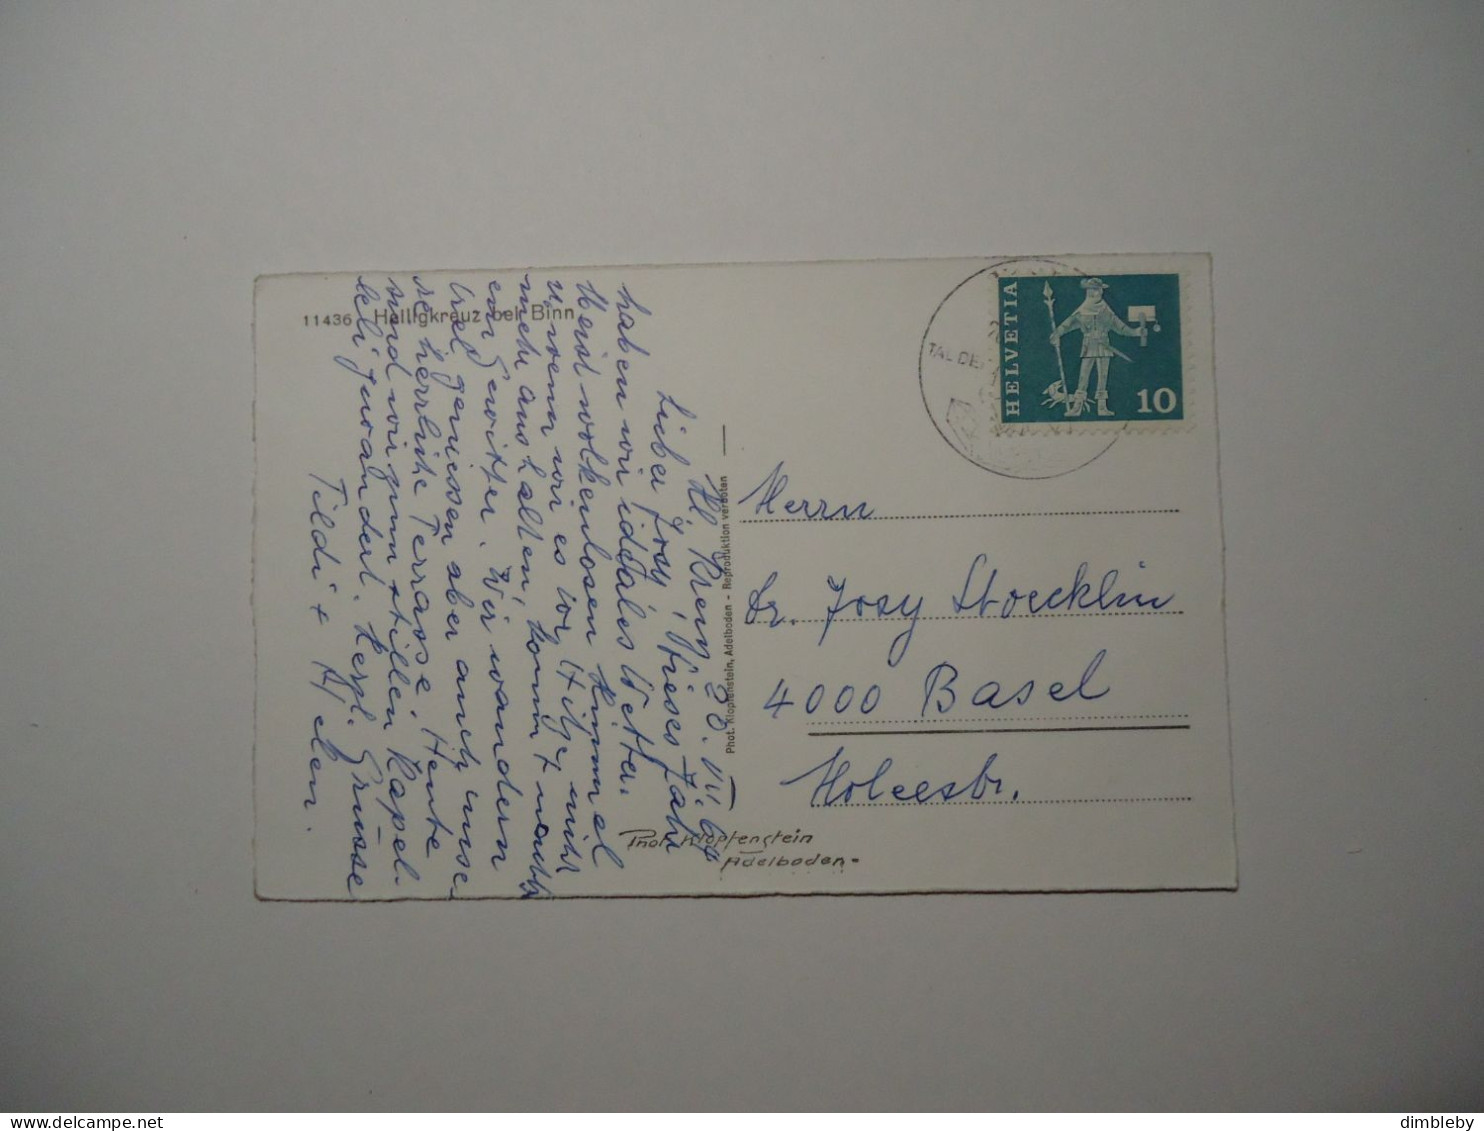 11436 Heiligkreuz bei Binn
Hl. Kreuz 30. VII. 69
Lieber Josy, Dieses Jahr
haben wir ideales Wetter.
Meist wolkenlosen Himmel
u. wenn wir es vor Hitze nicht
mehr aushalten, kommt nachts
ein Gewitter. Wir wandern
viel, geniessen aber auch unse-
re herrliche Terrasse. Heute
sind wir zum stillen Kapel-
leli gewandert. Herzl. Grüsse
Tildi + Helen.
Phot. Klopfenstein, Adelboden - Reproduktion verboten
Phot. Klopfenstein
Adelboden-
HELVETIA
10
TAL DE
Herrn
Dr. Josy Stoecklin
4000 Basel
Holeestr.
dimbleby